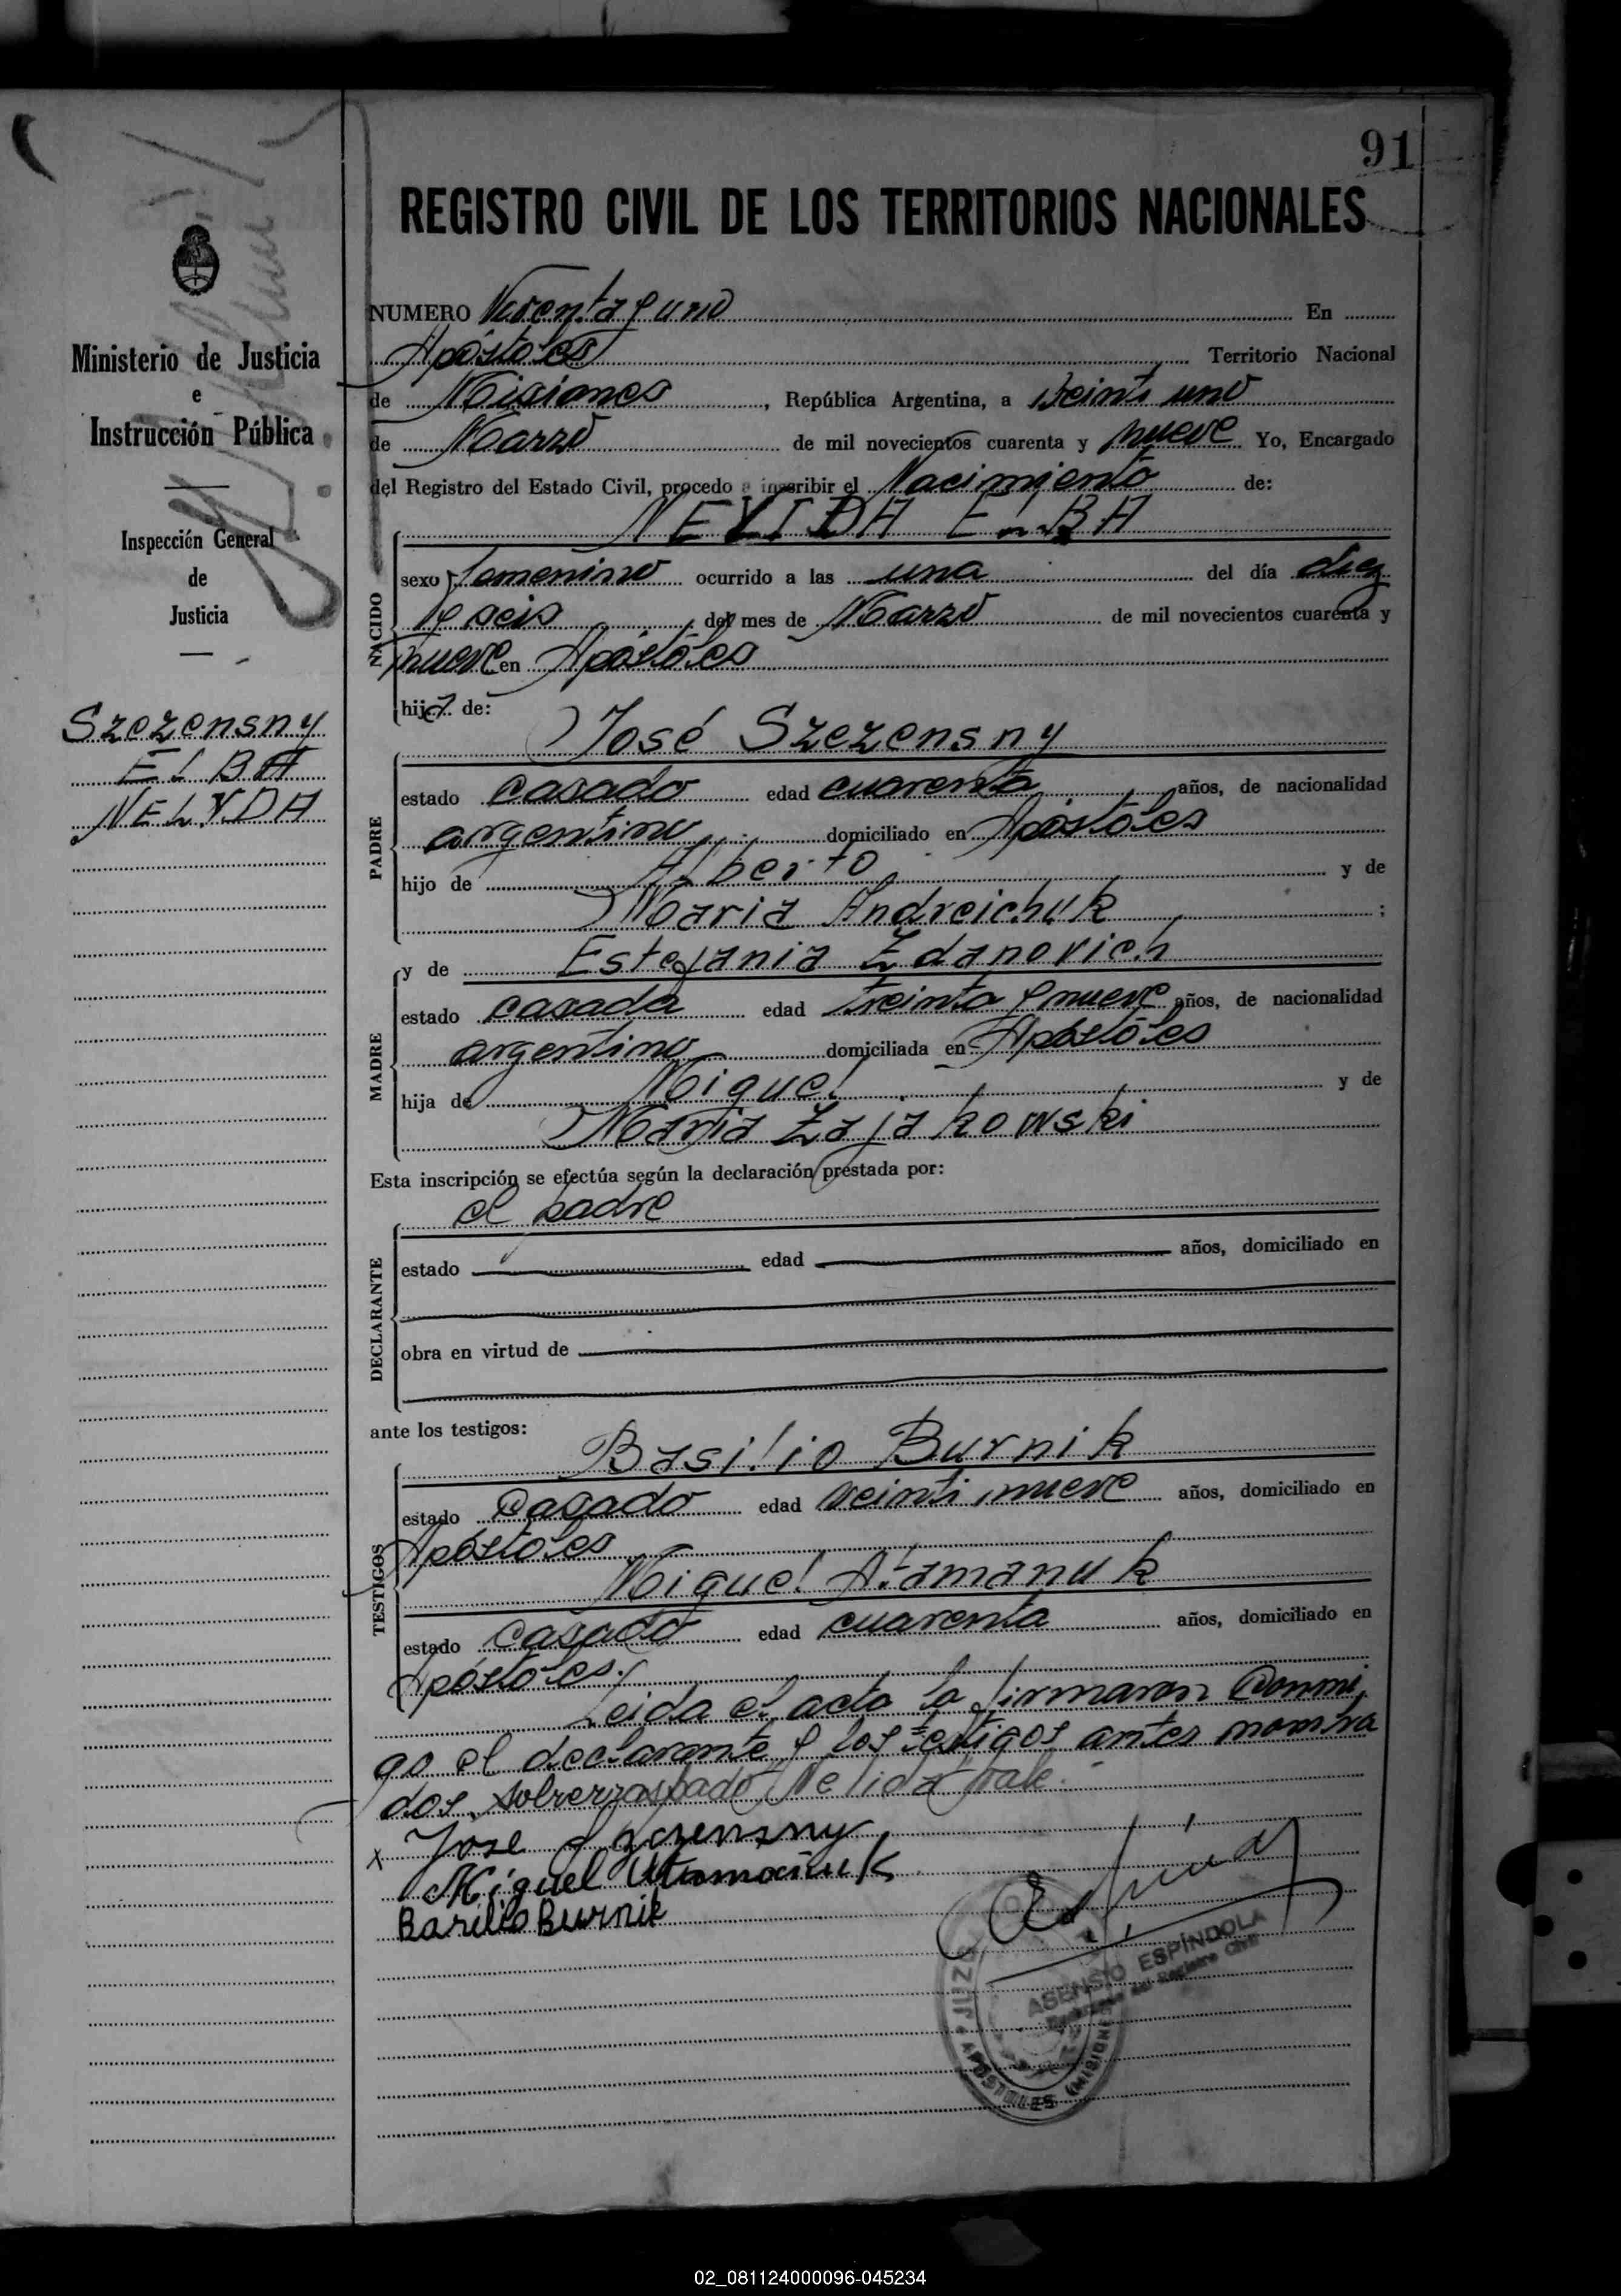 91
REGISTRO CIVIL DE LOS TERRITORIOS NACIONALES
Ministerio de Justicia
e
Instrucción Pública
Inspección General
de
Justicia
Szezensny
ELBA
NELYDA
NUMERO Noventa y uno En
Apóstoles Territorio Nacional
de Misiones, República Argentina, a Veinti uno
de Marzo de mil novecientos cuarenta y nueve Yo, Encargado
del Registro del Estado Civil, procedo a inscribir el Nacimiento de:
NELIDA ELBA
NACIDO
sexo femenino ocurrido a las una del día diez
y seis del mes de Marzo de mil novecientos cuarenta y
nueve en Apóstoles
hija de:
José Szezensny
PADRE
estado casado edad cuarenta años, de nacionalidad
argentino domiciliado en Apóstoles
hijo de Alberto y de
Maria Andreichuk ;
y de Estefania Zdanovich
MADRE
estado casada edad treinta y nueve años, de nacionalidad
argentina domiciliada en Apóstoles
hija de Miguel y de
Maria Zajakowski
Esta inscripción se efectúa según la declaración prestada por:
el padre
DECLARANTE
estado edad años, domiciliado en
obra en virtud de
ante los testigos:
Basilio Burnik
TESTIGOS
estado Casado edad veinti nueve años, domiciliado en
Apóstoles
Miguel Atamanuk
estado Casado edad cuarenta años, domiciliado en
Apóstoles./
Leida el acta la firmaron Conmi
go el declarante y los testigos antes nombra
dos. sobrerraspado Nelida vale.-
x Jose Szczensny
Miguel Atamaniuk
Basilio Burnik
ASENSIO ESPÍNDOLA
Encargado del Registro Civil
APOSTOLES (MISIONES
02_081124000096-045234